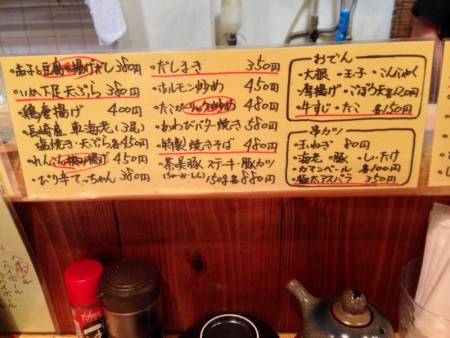 ・茄子と豆腐の揚げだし 380円
・いか下足天ぷら 380円
・鶏唐揚げ 400円
・長崎産 車海老(3尾)
塩焼き・天ぷら各450円
・れんこん挟み揚げ 450円
・ぴり辛てっちゃん 380円
・だしまき 350円
・ホルモン炒め 450円
・たこガーリック炒め 480円
・あわびバター焼き 580円
・特製焼きそば 480円
・茶美豚 ステーキ・豚カツ
150g 各880円
おでん
・大根 ・玉子 ・こんにゃく
・唐揚げ・ごぼう天各120円
・牛すじ・たこ 各150円
串カツ
・玉ねぎ 80円
・海老・豚・しいたけ
・カマンベール 各100円
・極太アスパラ 350円